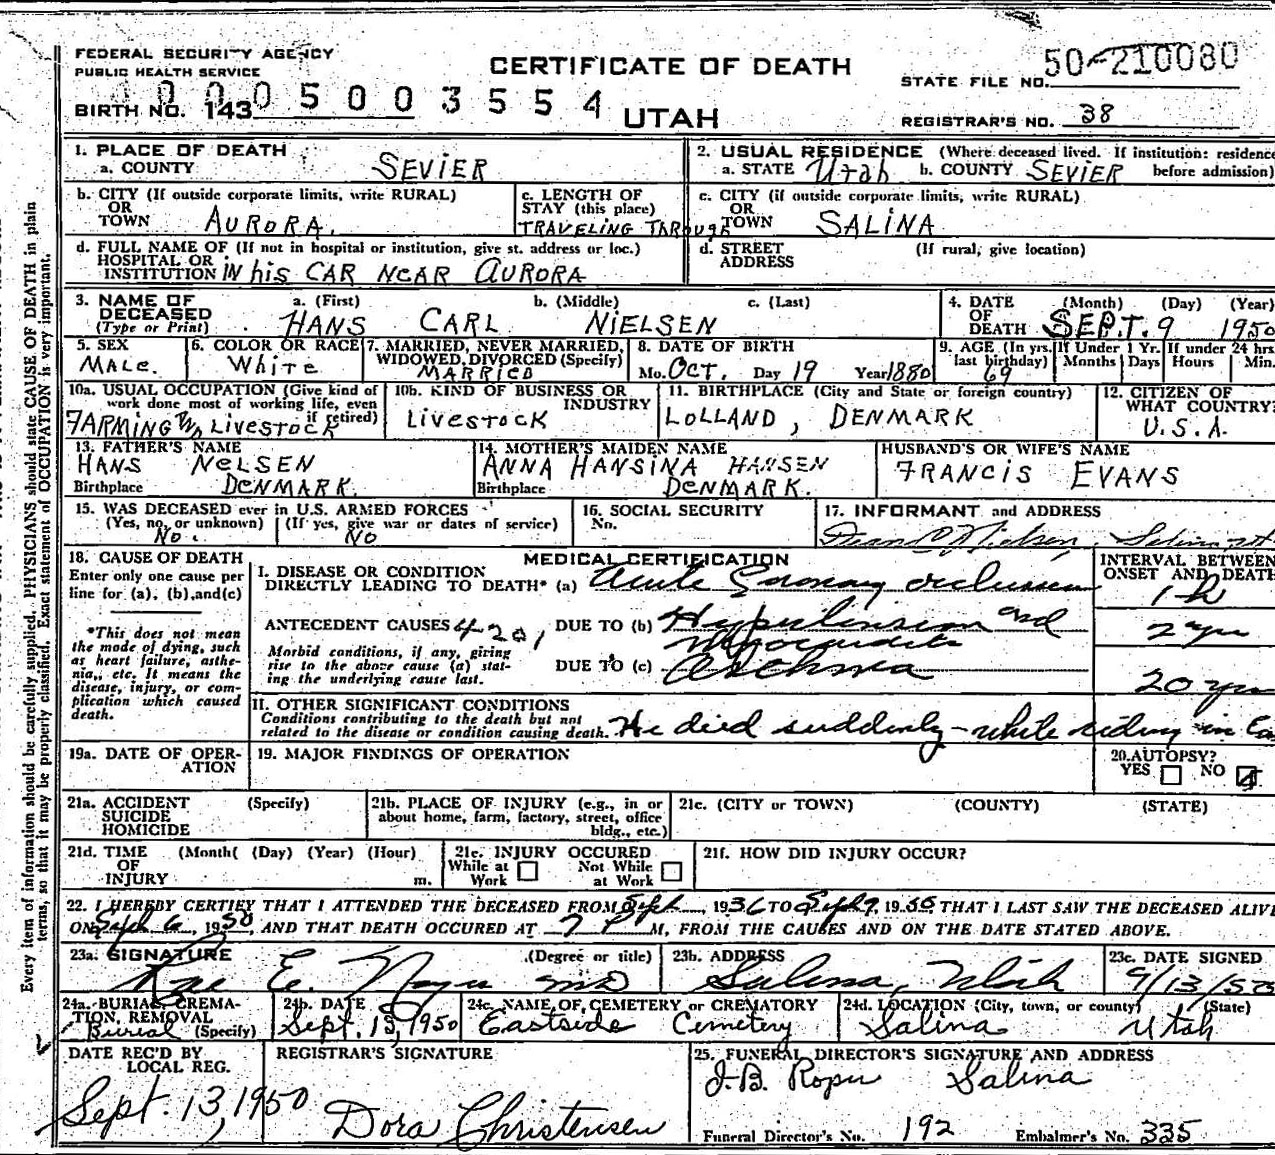 FEDERAL SECURITY AGENCY
PUBLIC HEALTH SERVICE
CERTIFICATE OF DEATH
UTAH
STATE FILE NO. 50-210080
BIRTH NO. 143 0005003554
REGISTRAR'S NO. 38
1. PLACE OF DEATH
a. COUNTY SEVIER
2. USUAL RESIDENCE (Where deceased lived. If institution: residence before admission)
a. STATE Utah b. COUNTY SEVIER
b. CITY (If outside corporate limits, write RURAL) OR TOWN AURORA.
c. LENGTH OF STAY (this place) TRAVELING THROUGH
c. CITY (if outside corporate limits, write RURAL) OR TOWN SALINA
d. FULL NAME OF (If not in hospital or institution, give st. address or loc.) HOSPITAL OR INSTITUTION IN his CAR NEAR AURORA
d. STREET ADDRESS (If rural, give location)
3. NAME OF DECEASED (Type or Print) a. (First) b. (Middle) c. (Last)
HANS CARL NIELSEN
4. DATE OF DEATH (Month) (Day) (Year)
SEPT. 9 1950
5. SEX MALE.
6. COLOR OR RACE White
7. MARRIED, NEVER MARRIED, WIDOWED, DIVORCED (Specify) MARRIED
8. DATE OF BIRTH Mo. OCT. Day 19 Year 1880
9. AGE (In yrs. last birthday) 69 If Under 1 Yr. Months Days If under 24 hrs. Hours Min.
10a. USUAL OCCUPATION (Give kind of work done most of working life, even if retired) FARMING LIVESTOCK
10b. KIND OF BUSINESS OR INDUSTRY LIVESTOCK
11. BIRTHPLACE (City and State or foreign country) LOLLAND, DENMARK
12. CITIZEN OF WHAT COUNTRY? U.S.A.
13. FATHER'S NAME HANS NELSEN
Birthplace DENMARK.
14. MOTHER'S MAIDEN NAME ANNA HANSINA HANSEN
Birthplace DENMARK.
HUSBAND'S OR WIFE'S NAME FRANCIS EVANS
15. WAS DECEASED ever in U.S. ARMED FORCES
(Yes, no, or unknown) No. (If yes, give war or dates of service) No
16. SOCIAL SECURITY No.
17. INFORMANT and ADDRESS
Nielsen, Salina
18. CAUSE OF DEATH
Enter only one cause per line for (a), (b), and (c)
*This does not mean the mode of dying, such as heart failure, asthenia,, etc. It means the disease, injury, or complication which caused death.
MEDICAL CERTIFICATION
INTERVAL BETWEEN ONSET AND DEATH
I. DISEASE OR CONDITION DIRECTLY LEADING TO DEATH* (a) Acute Coronary occlusion
ANTECEDENT CAUSES 420.1 DUE TO (b) Hypertension and Myocarditis 2 yrs
Morbid conditions, if any, giving rise to the above cause (a) stating the underlying cause last.
DUE TO (c) Asthma 20 yrs
II. OTHER SIGNIFICANT CONDITIONS
Conditions contributing to the death but not related to the disease or condition causing death. He died suddenly - while riding in Car
19a. DATE OF OPERATION
19. MAJOR FINDINGS OF OPERATION
20. AUTOPSY? YES NO
21a. ACCIDENT SUICIDE HOMICIDE (Specify)
21b. PLACE OF INJURY (e.g., in or about home, farm, factory, street, office bldg., etc.)
21c. (CITY or TOWN) (COUNTY) (STATE)
21d. TIME OF INJURY (Month( (Day) (Year) (Hour) m.
21e. INJURY OCCURED While at Work Not While at Work
21f. HOW DID INJURY OCCUR?
22. I HEREBY CERTIFY THAT I ATTENDED THE DECEASED FROM Sept, 1936 TO Sept 9, 1950 THAT I LAST SAW THE DECEASED ALIVE
ON Sept 6, 1950, AND THAT DEATH OCCURED AT 7 P M, FROM THE CAUSES AND ON THE DATE STATED ABOVE.
23a. SIGNATURE (Degree or title)
Rae E. Noyes MD
23b. ADDRESS Salina, Utah
23c. DATE SIGNED 9/13/50
24a. BURIAL, CREMATION, REMOVAL (Specify) Burial
24b. DATE Sept. 13, 1950
24c. NAME OF CEMETERY or CREMATORY Eastside Cemetery
24d. LOCATION (City, town, or county) (State) Salina Utah
DATE REC'D BY LOCAL REG. Sept. 13, 1950
REGISTRAR'S SIGNATURE Dora Christensen
25. FUNERAL DIRECTOR'S SIGNATURE AND ADDRESS
J.B. Roper Salina
Funeral Director's No. 192 Embalmer's No. 335
Every item of information should be carefully supplied. PHYSICIANS should state CAUSE OF DEATH in plain
terms, so that it may be properly classified. Exact statement of OCCUPATION is very important.